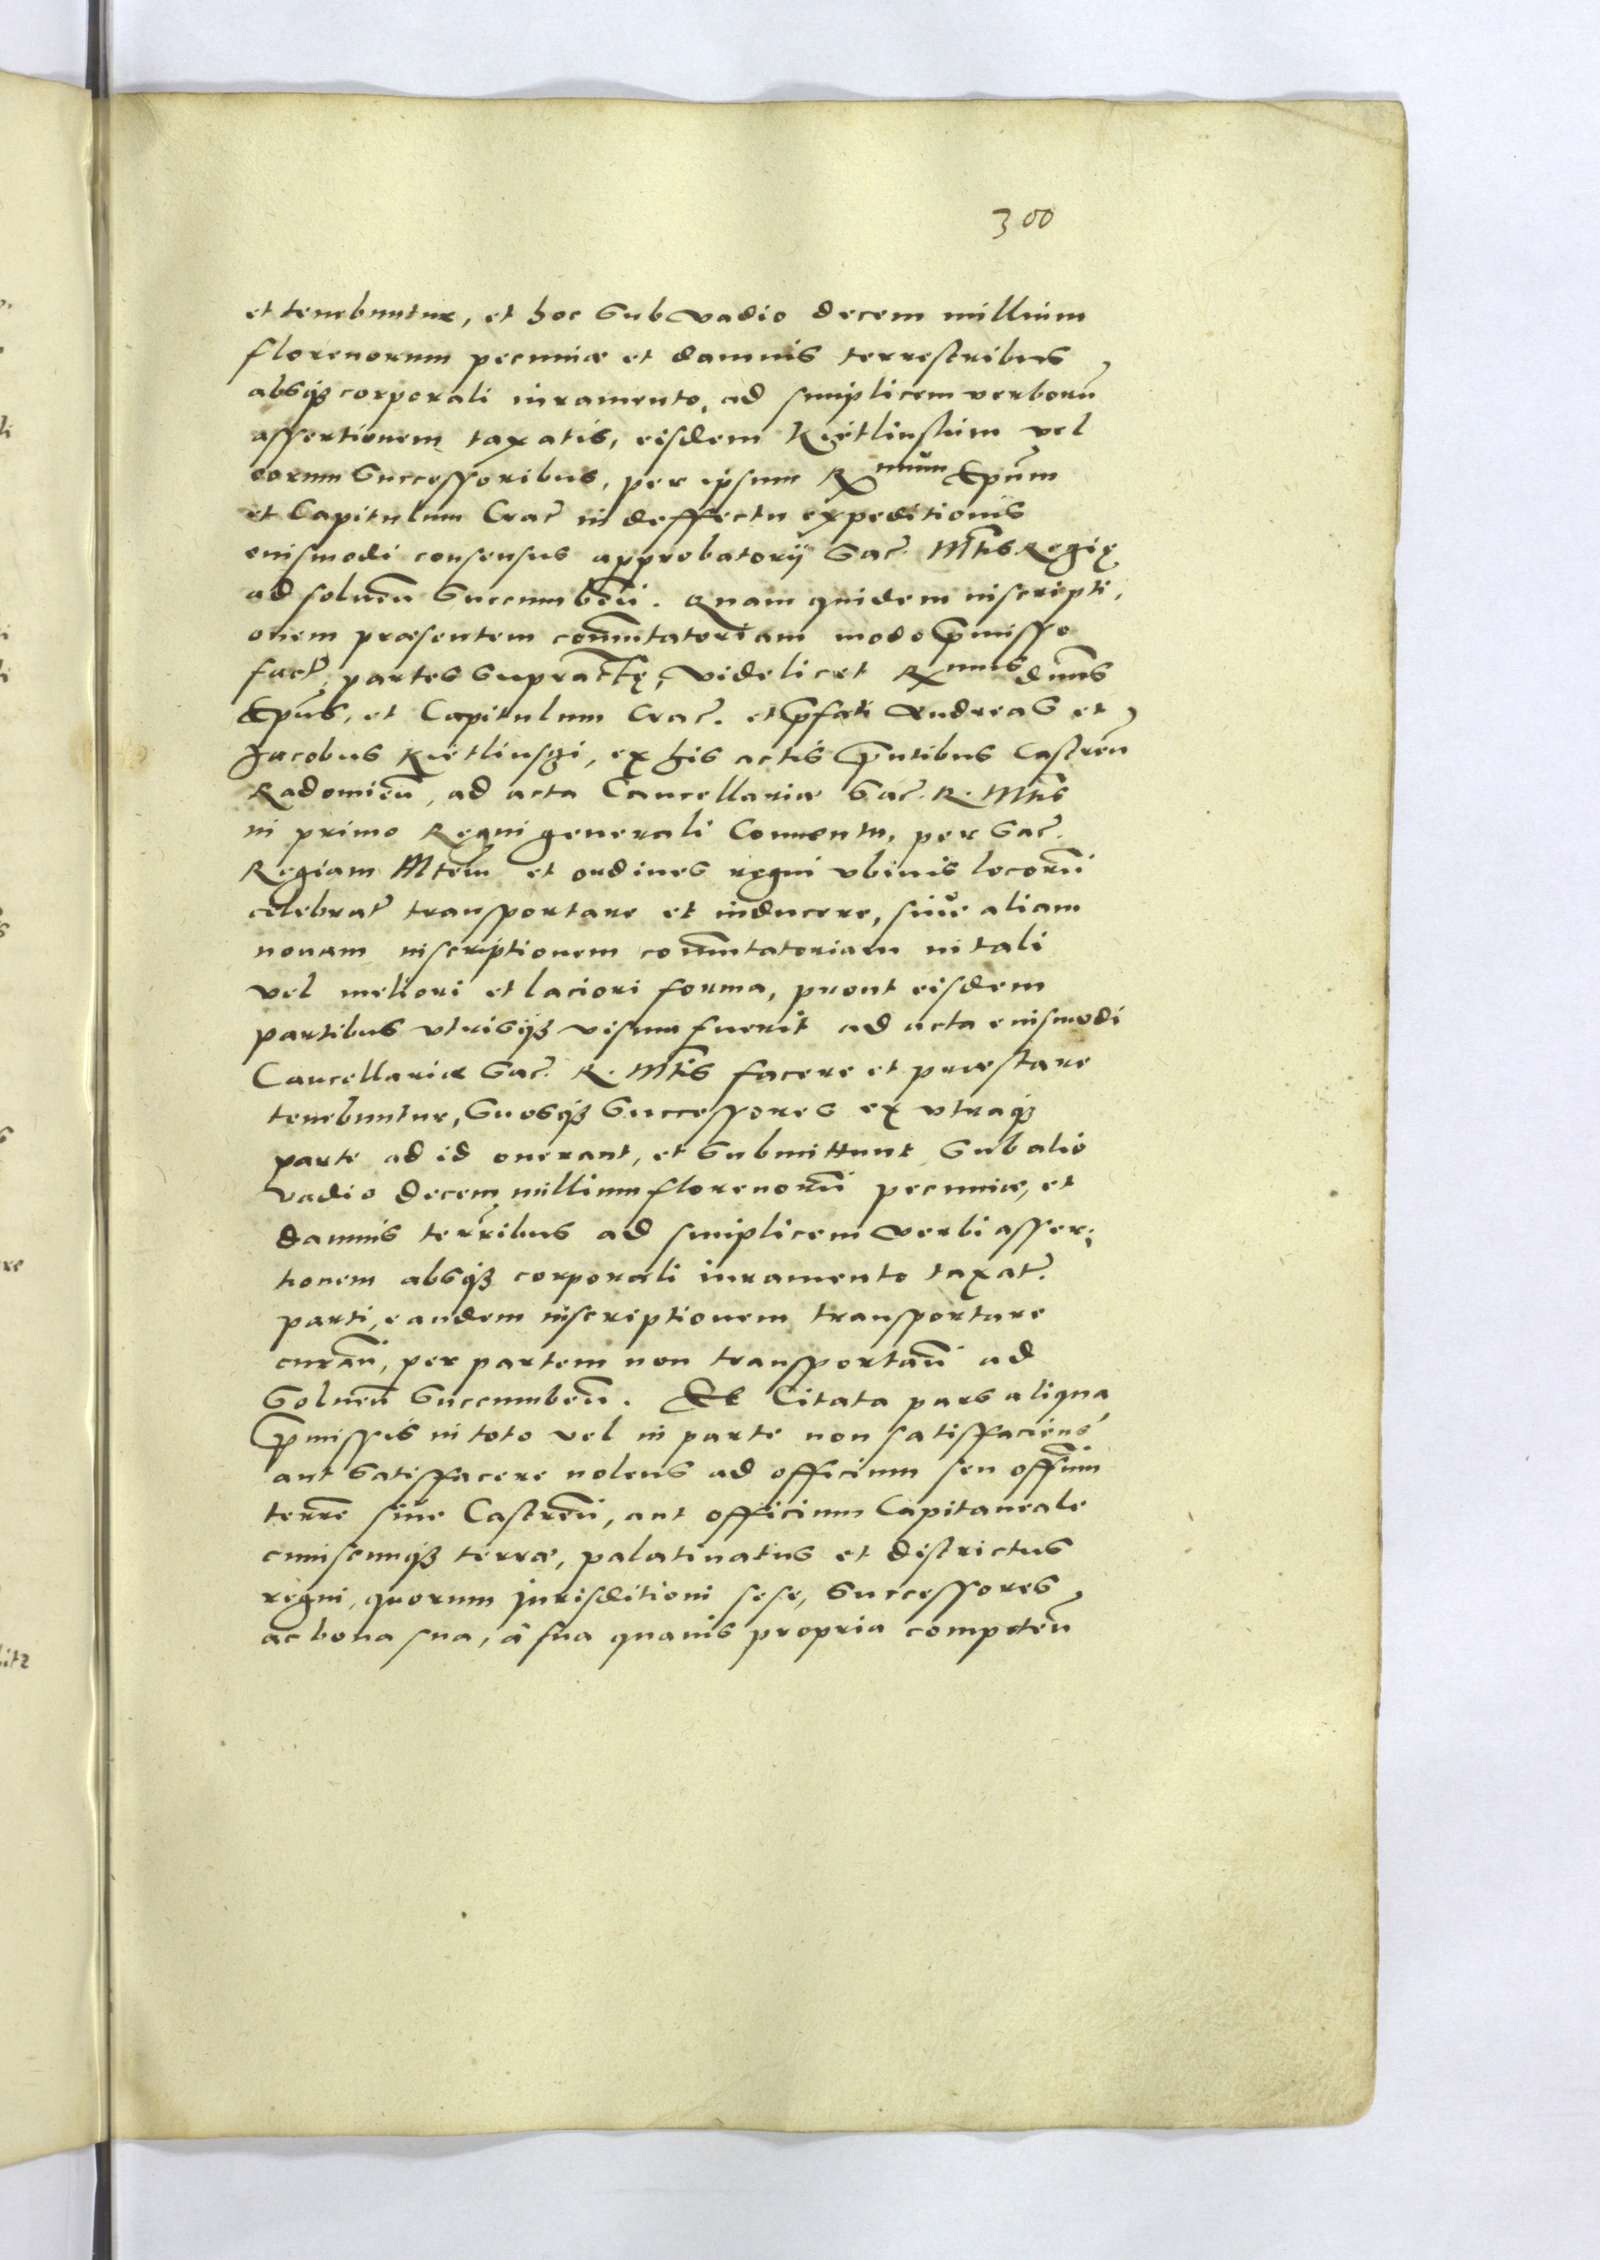 300
et tenebuntur, et hoc sub vadio decem millium
florenorum pecuniæ et damnis terrestribus
absq3 corporali iuramento, ad simplicem verborũ
assertionem taxatis, eisdem Kietlinskim vel
eorum successoribus, per ipsum R mum Epũm
et Capitulum Crac̃ in deffectu expeditionis
eiusmodi consensus approbatorij Sac̃. Mt̃is Regię
ad soluen̄ succumbeñ. Quam quidem inscripti,
onem præsentem com̃utatoriam modo p̃misso
fact̃, partes supractę, videlicet R mus dñus
Epũs, et Capitulum Crac̃. et p̃fati Andreas et
Jacobus Kietlinsḡi, ex his actis p̃ntibus Castreñ
Radomieñ, ad acta Cancellariæ Sac̃. R. Mt̃is
in primo Regni generali Conuentu, per Sac̃.
Regiam Mt̃em et ordines regni vbiuis locorũ
celebrat̃ transportare et inducere, siue aliam
nouam inscriptionem com̃utatoriam in tali
vel meliori et laciori forma, prout eisdem
partibus vtrisq3 visum fuerit ad acta eiusmodi
Cancellariæ Sac̃. R. Mt̃is facere et præstare
tenebuntur, suosq3 successores ex vtraq3
parte ad id onerant, et submittunt sub alio
vadio decem millium florenorũ pecuniæ, et
damnis terr̃ribus ad simplicem verbi asser,
tionem absq3 corporali iuramento taxat̃.
parti, eandem inscriptionem transportare
curañ, per partem non transportañ ad
solueñ succumbeñ. Et Citata pars aliqua
p̃missis in toto vel in parte non satisfaciens
aut satisfacere nolens ad officium seu off̃um
terr̃e siue Castreñ, aut officium Capitaneale
cuiuscunq3 terræ, palatinatus et districtus
regni, quorum jurisditioni sese, successores
ac bona sua, â sua quauis propria competeñ